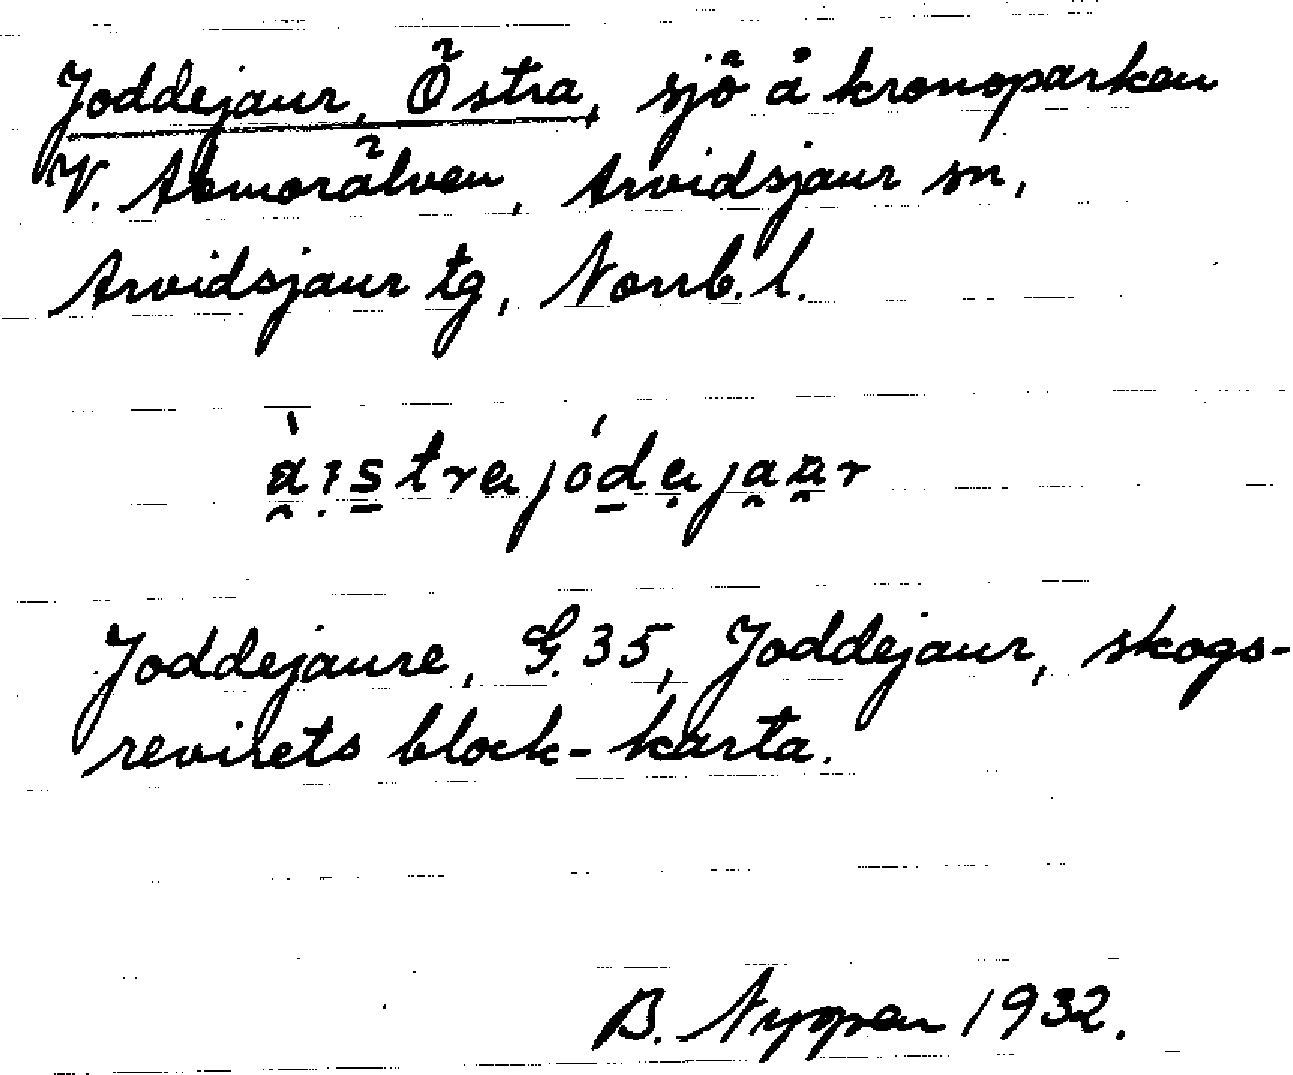 Joddejaur, Östra, sjö å kronoparken
V. Asmorälven, Arvidsjaur sn,
Arvidsjaur tg, Norrb. l.
Joddejaure, G. 35, Joddejaur, skogs-
revirets block-karta.
B. Nyppen 1932.